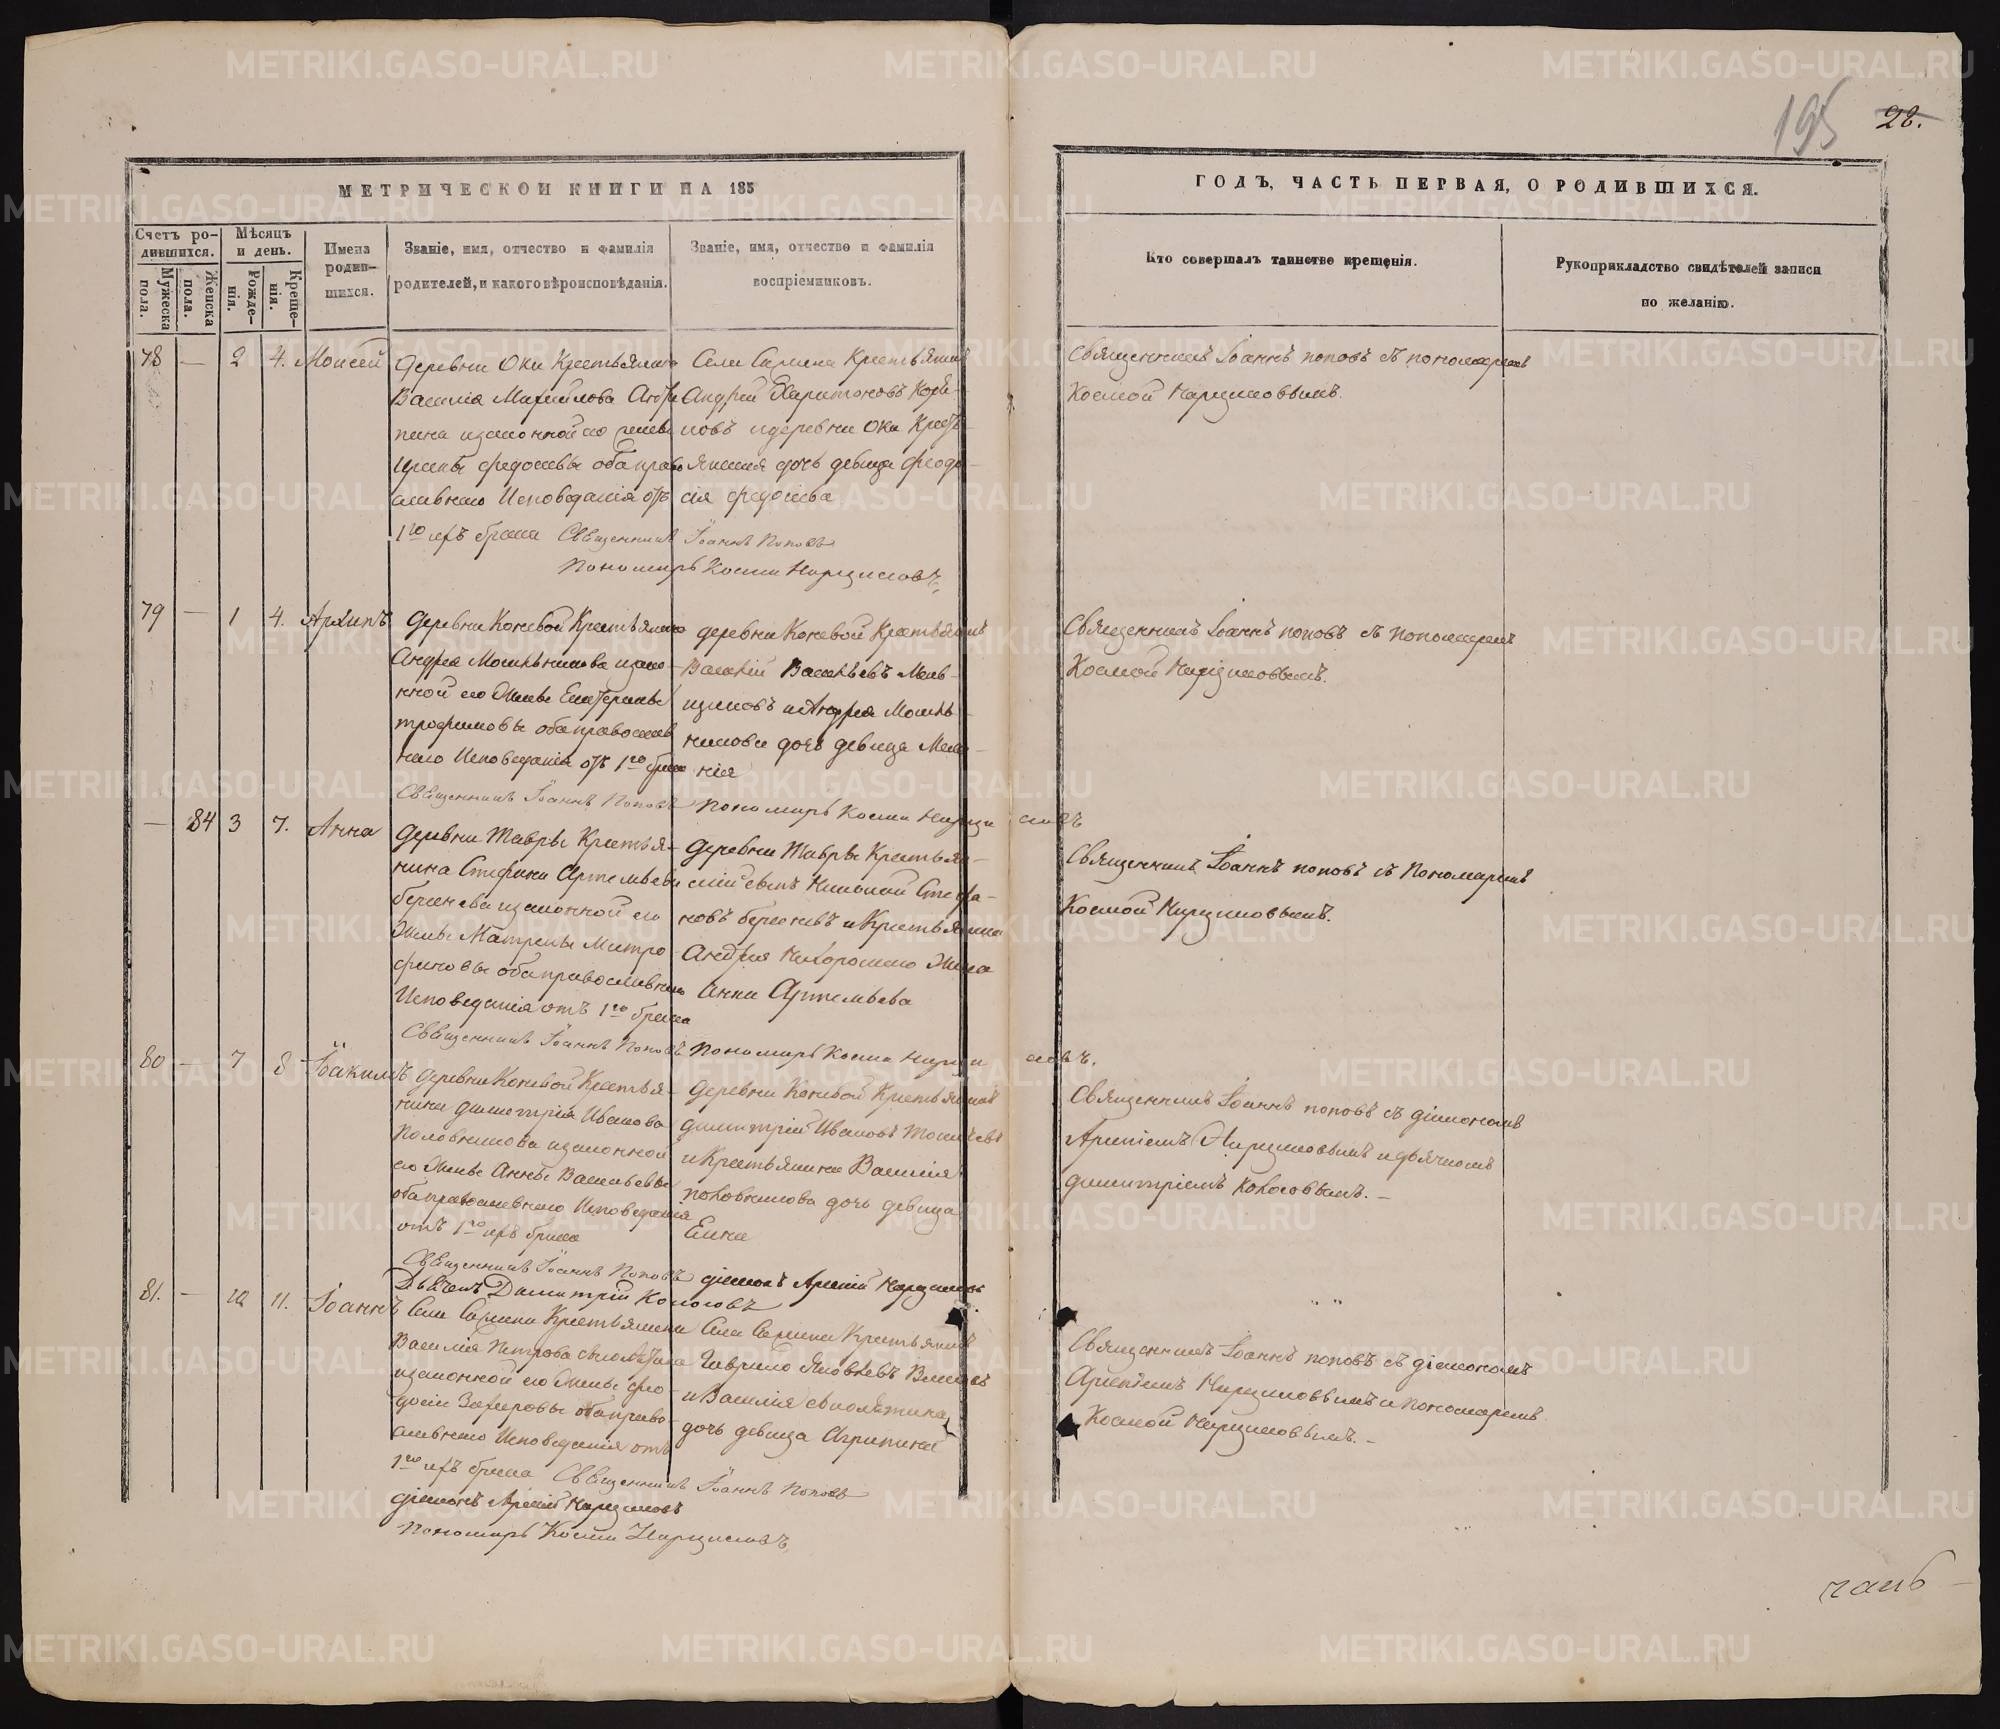 195
28.
МЕТРИЧЕСКОЙ КНИГИ НА 185
ГОДЪ, ЧАСТЬ ПЕРВАЯ, О РОДИВШИХСЯ.
Счетъ ро-
дившихся.
Мужеска
пола.
Женска
пола.
Мѣсяцъ
и день.
Рожде-
нія.
Креще-
нія.
Имена
родив-
шихся.
Званіе, имя, отчество и фамилія
родителей, и какого вѣроисповѣданія.
Званіе, имя, отчество и фамилія
воспріемниковъ.
Кто совершалъ таинство крещенія.
Рукоприкладство свидѣтелей записи
по желанію.
78 — 2 4. Моисей
деревни Оки Крестьянина
Василія
и законной его жены
обаправо
славнаго Исповеданія отъ
1го ихъ брака Священникъ Іоаннъ Поповъ
Пономарь Косма Нарциссовъ
Села Сажина Крестьянинъ
Андрей Харитоновъ
новъ и деревни Оки Кресть
янина дочь девица Феодо-
сія
Священникъ Іоаннъ поповъ съ пономаремъ
Космой Нарциссовымъ.
79 — 1 4. Архипъ
деревни Коневой Крестьянина
Андрея Мошкѣникова изако-
нной его Жены Екатерины
трофимовы оба православ
наго Исповеданія отъ 1го брака
Священникъ Іоаннъ Поповъ Пономарь Косма Нарци ссовъ
деревни Коневой Крестьянинъ
Василій Васильевъ Мель-
и Андрея
никова дочь девица Мела-
нія
Священникъ Іоаннъ поповъ съ Пономаремъ
Космой Нарциссовымъ.
— 84 3 7. Анна
Деревни Тавры Крестья-
нина Стефана Артемьева
изаконной его
Жены Матрены Митро
фановы обаправославнаго
Исповеданія отъ 1го брака
Священникъ Іоаннъ Поповъ Пономарь Косма Нарци ссовъ.
Деревни Тавры Крестьян-
скій сынъ Николай Стефа-
новъ и Крестьянина
Андрея Жена
Анна Артемьева
Священникъ Іоаннъ поповъ съ Пономаремъ
Космой Нарциссовымъ.
80 — 7 8 Іоакимъ
деревни Коневой Крестья-
нина димитрія Иванова
Половникова изаконной
его Жены Анны Васильевы
обаправославнаго Исповеданія
отъ 1го ихъ брака
Священникъ Іоаннъ Поповъ діаконъ Арсеній Нарциссовъ
Дьячекъ Димитрій Колосовъ
деревни Коневой Крестьянинъ
димитрій Ивановъ
и Крестьянина Василія
половникова дочь девица
Елена
Священникъ Іоаннъ поповъ съ діакономъ
Арсеніемъ Нарциссовымъ и дьячкомъ
димитріемъ Колосовымъ. —
81. — 10 11. Іоаннъ
Села Сажина Крестьянина
Василія Петрова
изаконной его Жены Фео-
досіи Захаровы обаправо-
славнаго Исповеданія отъ
1го ихъ брака Священникъ Іоаннъ Поповъ
діаконъ Арсеній Нарциссовъ
Пономарь Косма Нарциссовъ
Села Сажина Крестьянинъ
Гаврило Яковлевъ Власовъ
и Василія
дочь девица Агрипина
Священникъ Іоаннъ поповъ съ діакономъ
Арсеніемъ Нарциссовымъ и пономаремъ
Космой Нарциссовымъ. —
METRIKI.GASO-URAL.RU